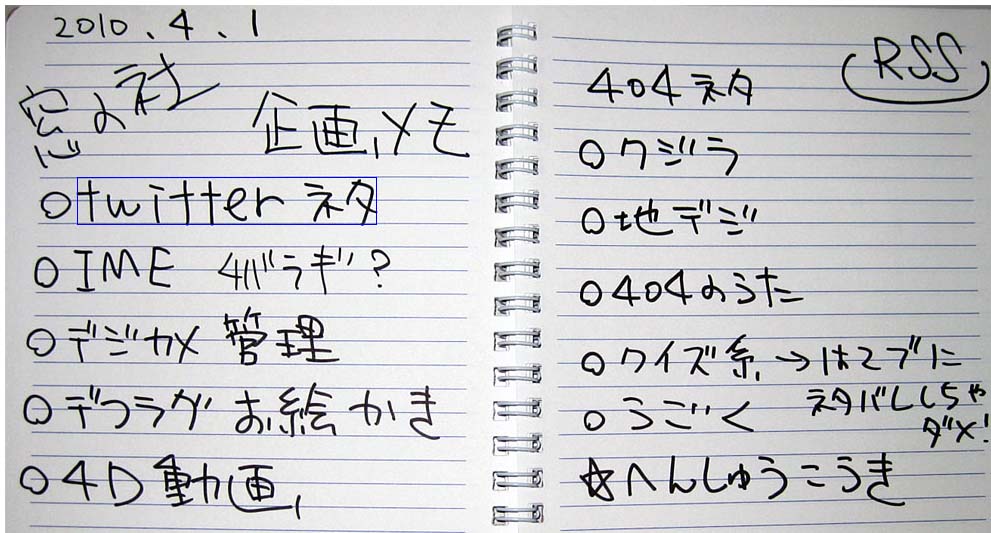 2010.4.1
窓の社
企画メモ
○twitterネタ
○IME
○デジカメ 管理
○デフラグ お絵かき
○4D動画
RSS
404ネタ
○クジラ
○地デジ
○404のうた
○クイズ系→はてブに
ネタバレしちゃ
ダメ!
○うごく
☆へんしゅうこうき